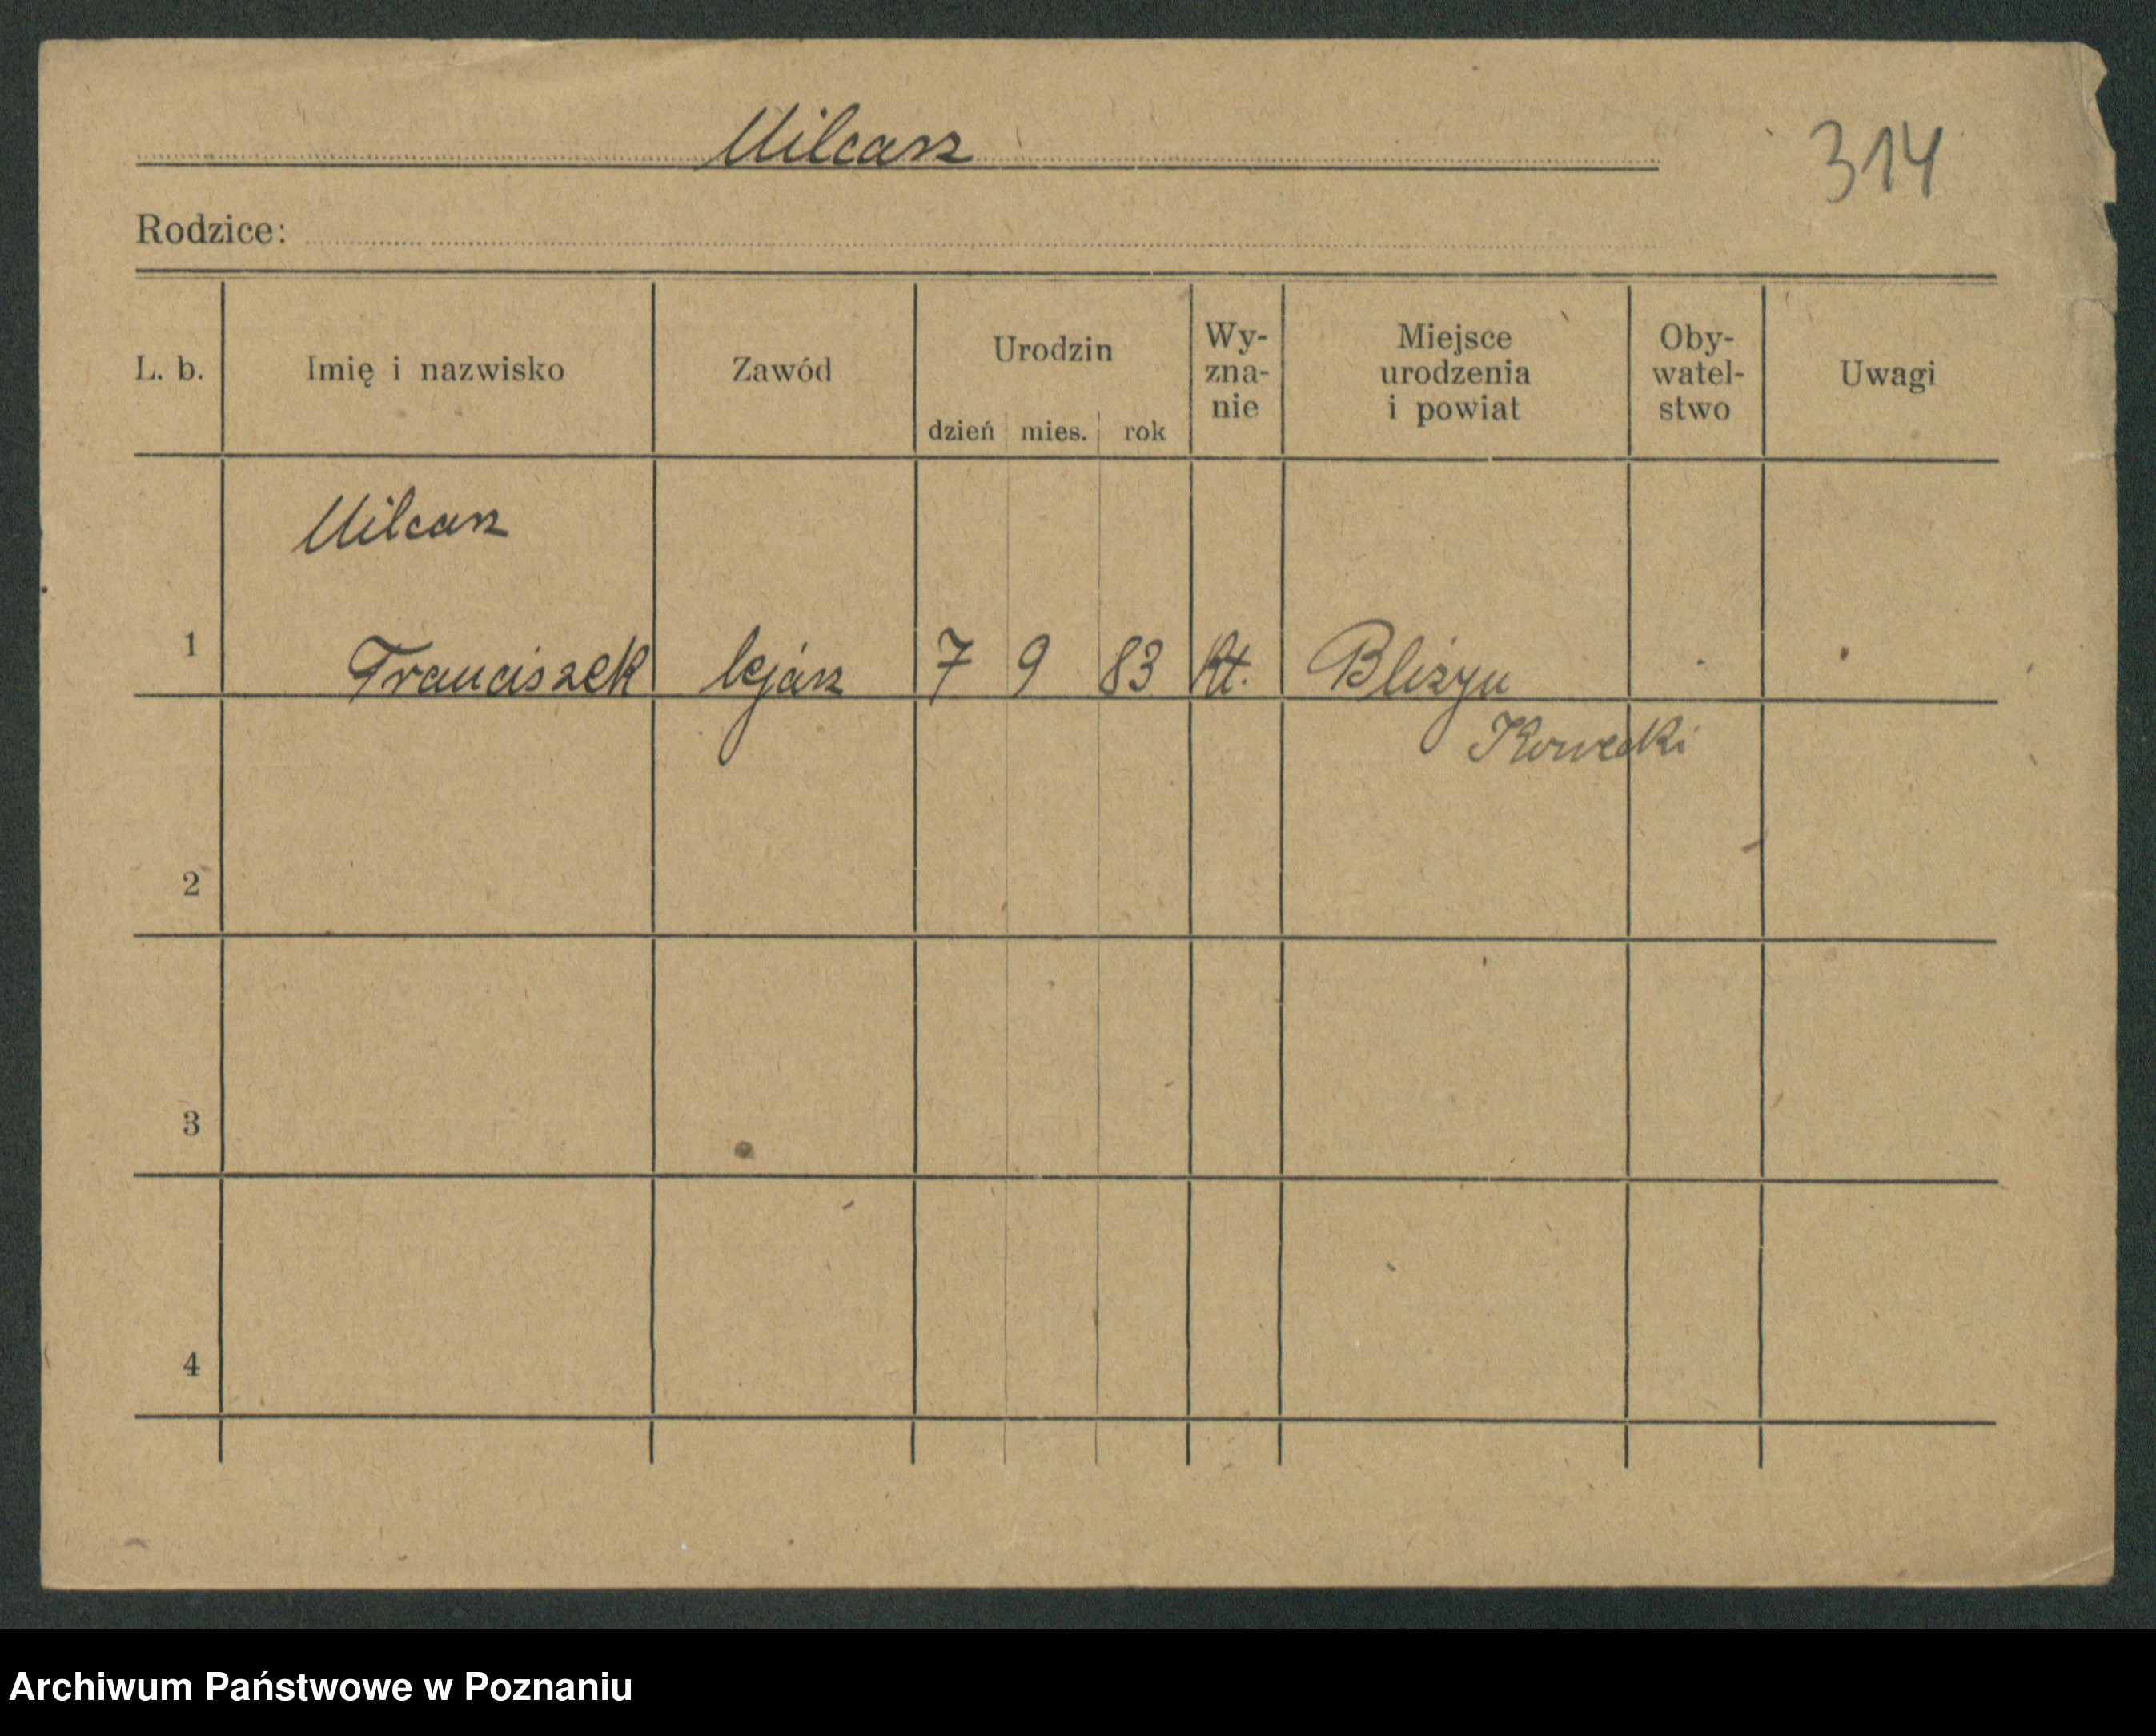 Milcarz
314
Rodzice:
L. b. Imię i nazwisko Zawód Urodzin dzień mies. rok Wy-zna-nie Miejsce urodzenia i powiat Oby-watel-stwo Uwagi
Milcarz
1 Franciszek lejarz 7 9 83 kt. Bliżyn
Konecki
2
3
4
Archiwum Państwowe w Poznaniu